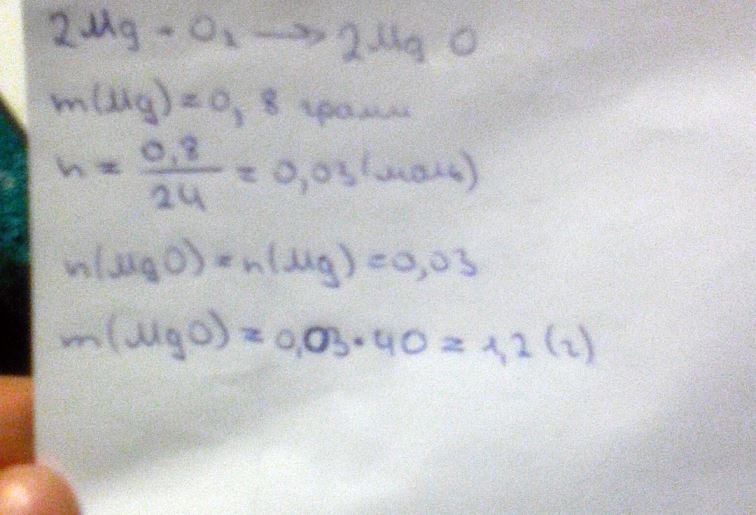 2Mg - O₂ → 2Mg O
m(Mg) = 0, 8 грамм
n = 0,8/24 = 0,03 (моль)
n(MgO) = n(Mg) = 0,03
m(MgO) = 0,03 • 40 = 1,2 (г)